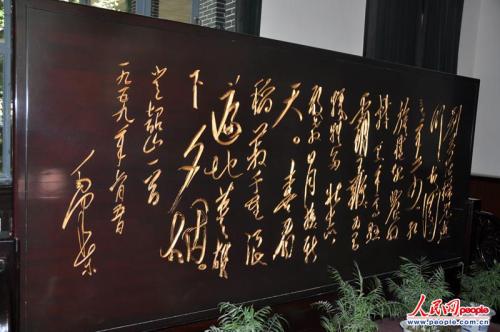 别梦依稀
川故园
三十二年前红
旗卷起农奴
戟黑手高悬
霸主鞭为有
牺牲多壮志
敢教日月换新
天。喜看
稻菽千重浪
遍地英雄
下夕烟。
登韶山一首
一九五九年六月
毛泽东
人民网 people
www.people.com.cn